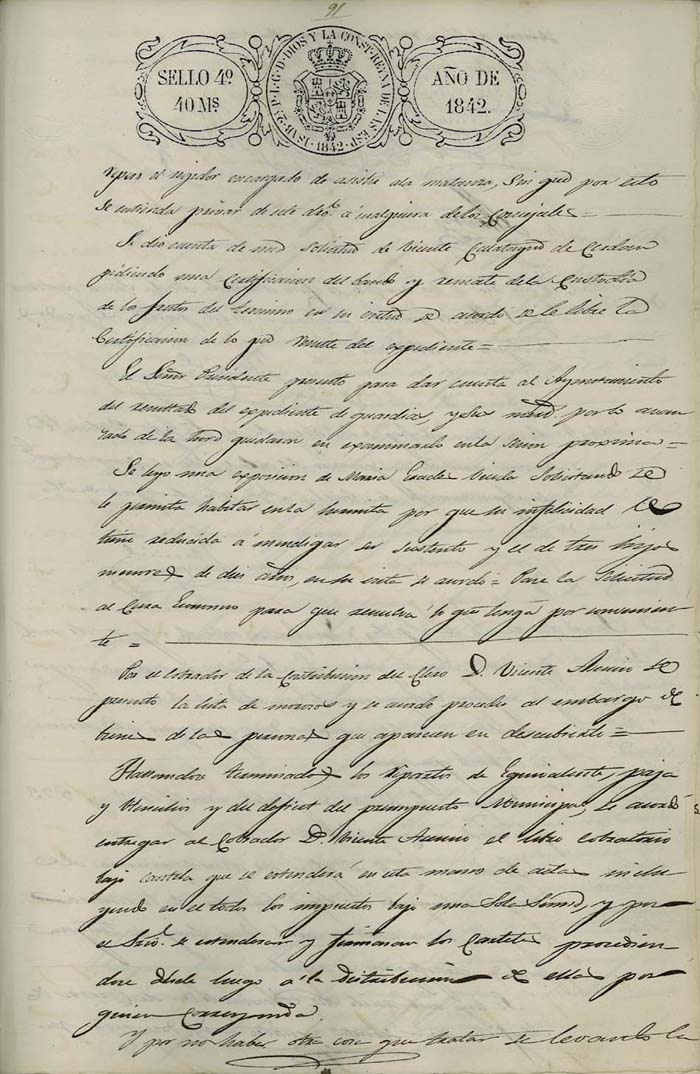 91
SELLO 4º
40 Ms.
ISAB. 2ª P. L. G. D. DIOS Y LA CONST. REINA DE LAS ESP.
1842
AÑO DE
1842.
el regidor encargado de asistir ala matanza, sin que por esto
se entienda privar de este dro. á cualquiera delos Concejales =
Se dio cuenta de una Solicitud de Vicente Calatayud de
pidiendo una Certificacion del bando y remate dela Custodia
de los frutos del termino en su virtud se acordo se le libre la
Certificacion de lo que resulte del expediente =
El Señor Presidente presento para dar cuenta al Ayuntamiento
del resultado del expediente de guardias, y Sus mrds. por lo avan
zado de la hora quedaron en examinarlo enla Sesion proxima =
Se leyo una exposicion de Maria Viuda Solicitando se
le permita habitar enla hermita por que su infelicidad la
tiene reducida á mendigar su sustento y el de tres hijos
menores de diez años, en su vista se acordo = Pase la Solicitud
al Cura Economo para que resuelva lo que tenga por convenien
te =
Por el Cobrador de la Contribucion del Clero D. Vicente Asensio se
presento la lista de morosos y se acordo proceder al embargo de
bienes de las personas que aparecen en descubierto =
Hallandose terminados los repartos de Equivalente, paja
y Utensilios y del deficit del presupuesto Municipal, se acordó
entregar al Cobrador D. Vicente Asensio el libro cobratorio
bajo cautela que se estenderá en esta mano de actas inclu
yendo en el todos los impuestos bajo una Sola Suma, y por
el Srio. se estenderan y firmaran los Carteles procedien
dose desde luego á la distribucion de ellas por
quien Corresponda.
Y por no haber otra cosa que tratar se levantó la